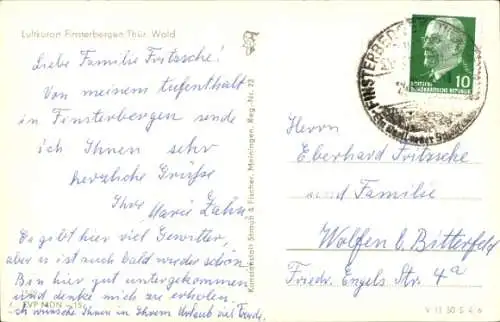 Luftkurort Finsterbergen Thür. Wald
Liebe Familie Fritzsche!
Von meinem Aufenthalt
in Finsterbergen sende
ich Ihnen sehr
herzliche Grüße
Ihre Marie Zahn
Es gibt hier viel Gewitter,
aber es ist auch bald wieder schön.
Bin hier gut untergekommen
und denke mich zu erholen.
Ich wünsche Ihnen in Ihrem Urlaub viel Freude.
EVP MDN
Straub & Fischer, Meiningen, Reg.-Nr. 23
FINSTERBERGEN
10
DEUTSCHE
DEMOKRATISCHE REPUBLIK
Herrn
Eberhard Fritzsche
und Familie
Wolfen b. Bitterfeld
Friedr. Engels Str. 4a
V 11 50 S 4 6